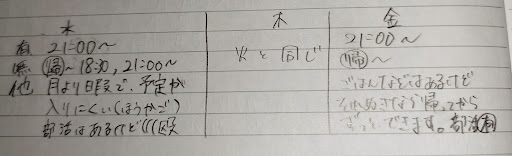 水 木 金
有 21:00〜 火と同じ 21:00〜
無 帰〜18:30, 21:00〜 帰〜
他 月より日暇で、予定が ごはんなどはあるけど
入りにくい(ほうかご) それぬきなら帰ってから
部活はあるけど ずっとできます。部活有